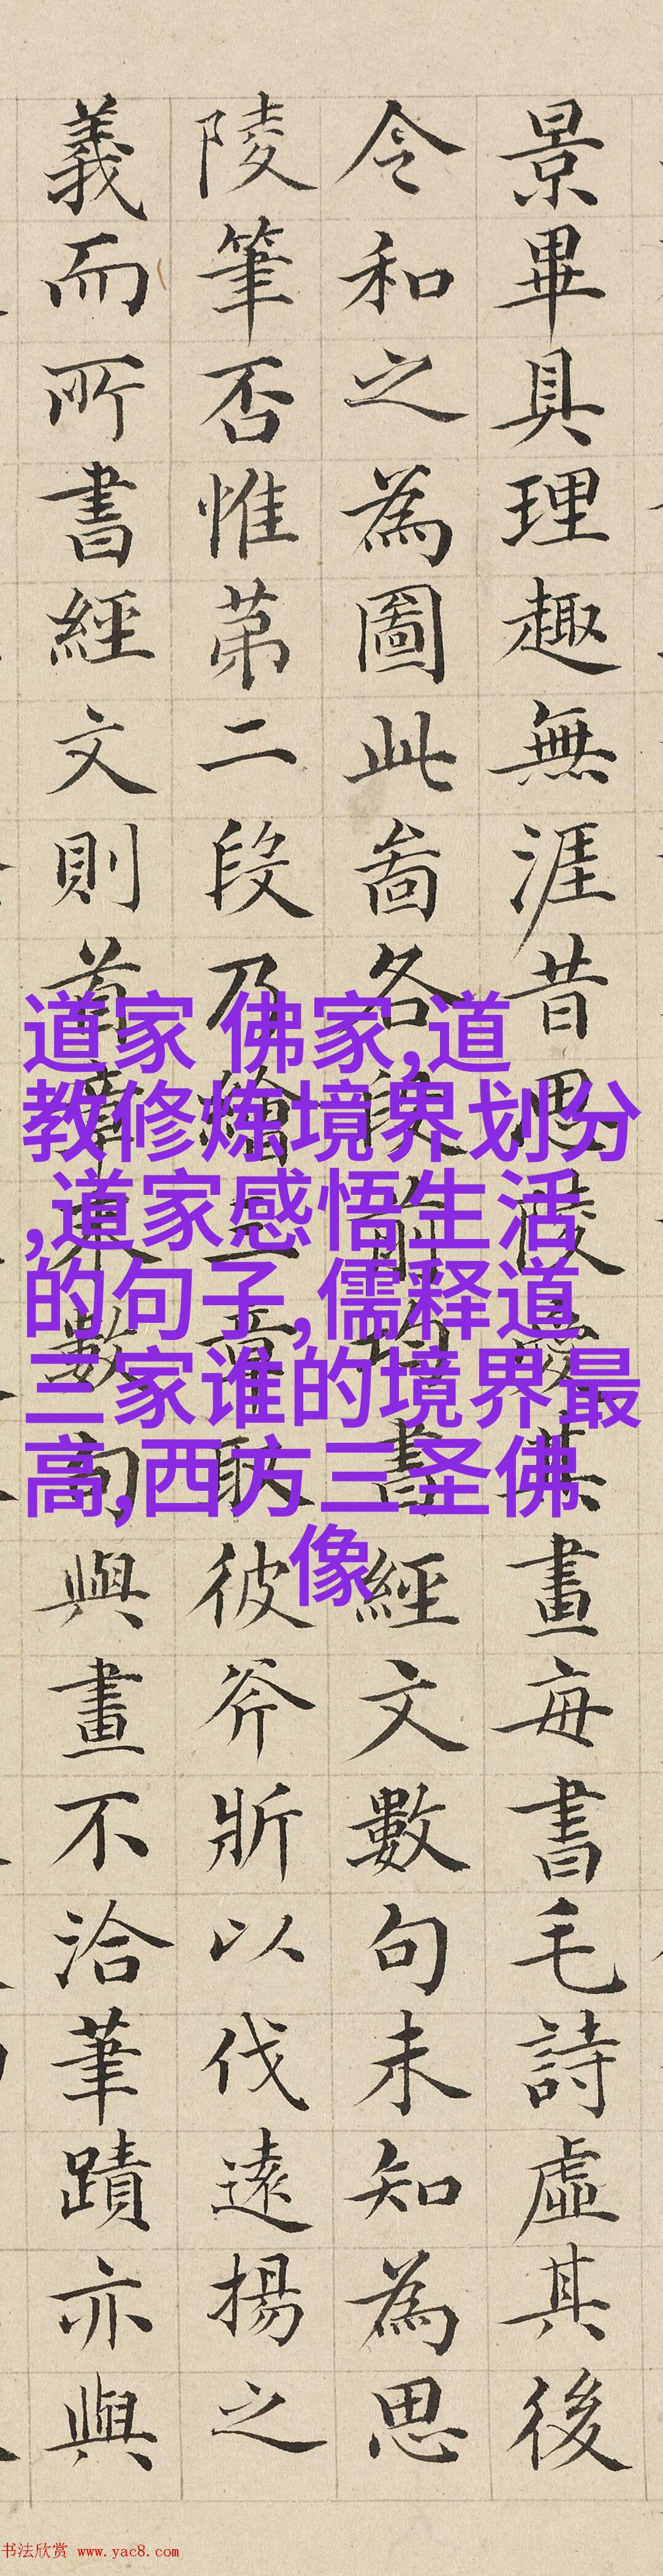 景畢具理趣無涯昔思陵愛其畫毎書毛詩虛其後
令和之為圖此啚各段前均書經文數句未知為思
陵筆否惟苐二段乃繪三章取彼斧斨以伐遠揚之
義而所書經文則首章數句與畫不洽筆蹟亦與
道家 佛家,道
教修炼境界划分
,道家感悟生活
的句子,儒释道
三家谁的境界最
高,西方三圣佛
像
书法欣赏 www.yac8.com